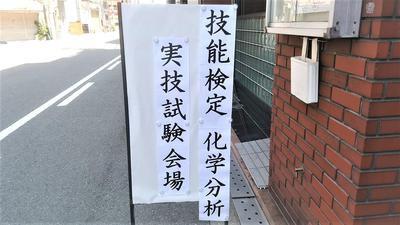 技能検定 化学分析
実技試験会場